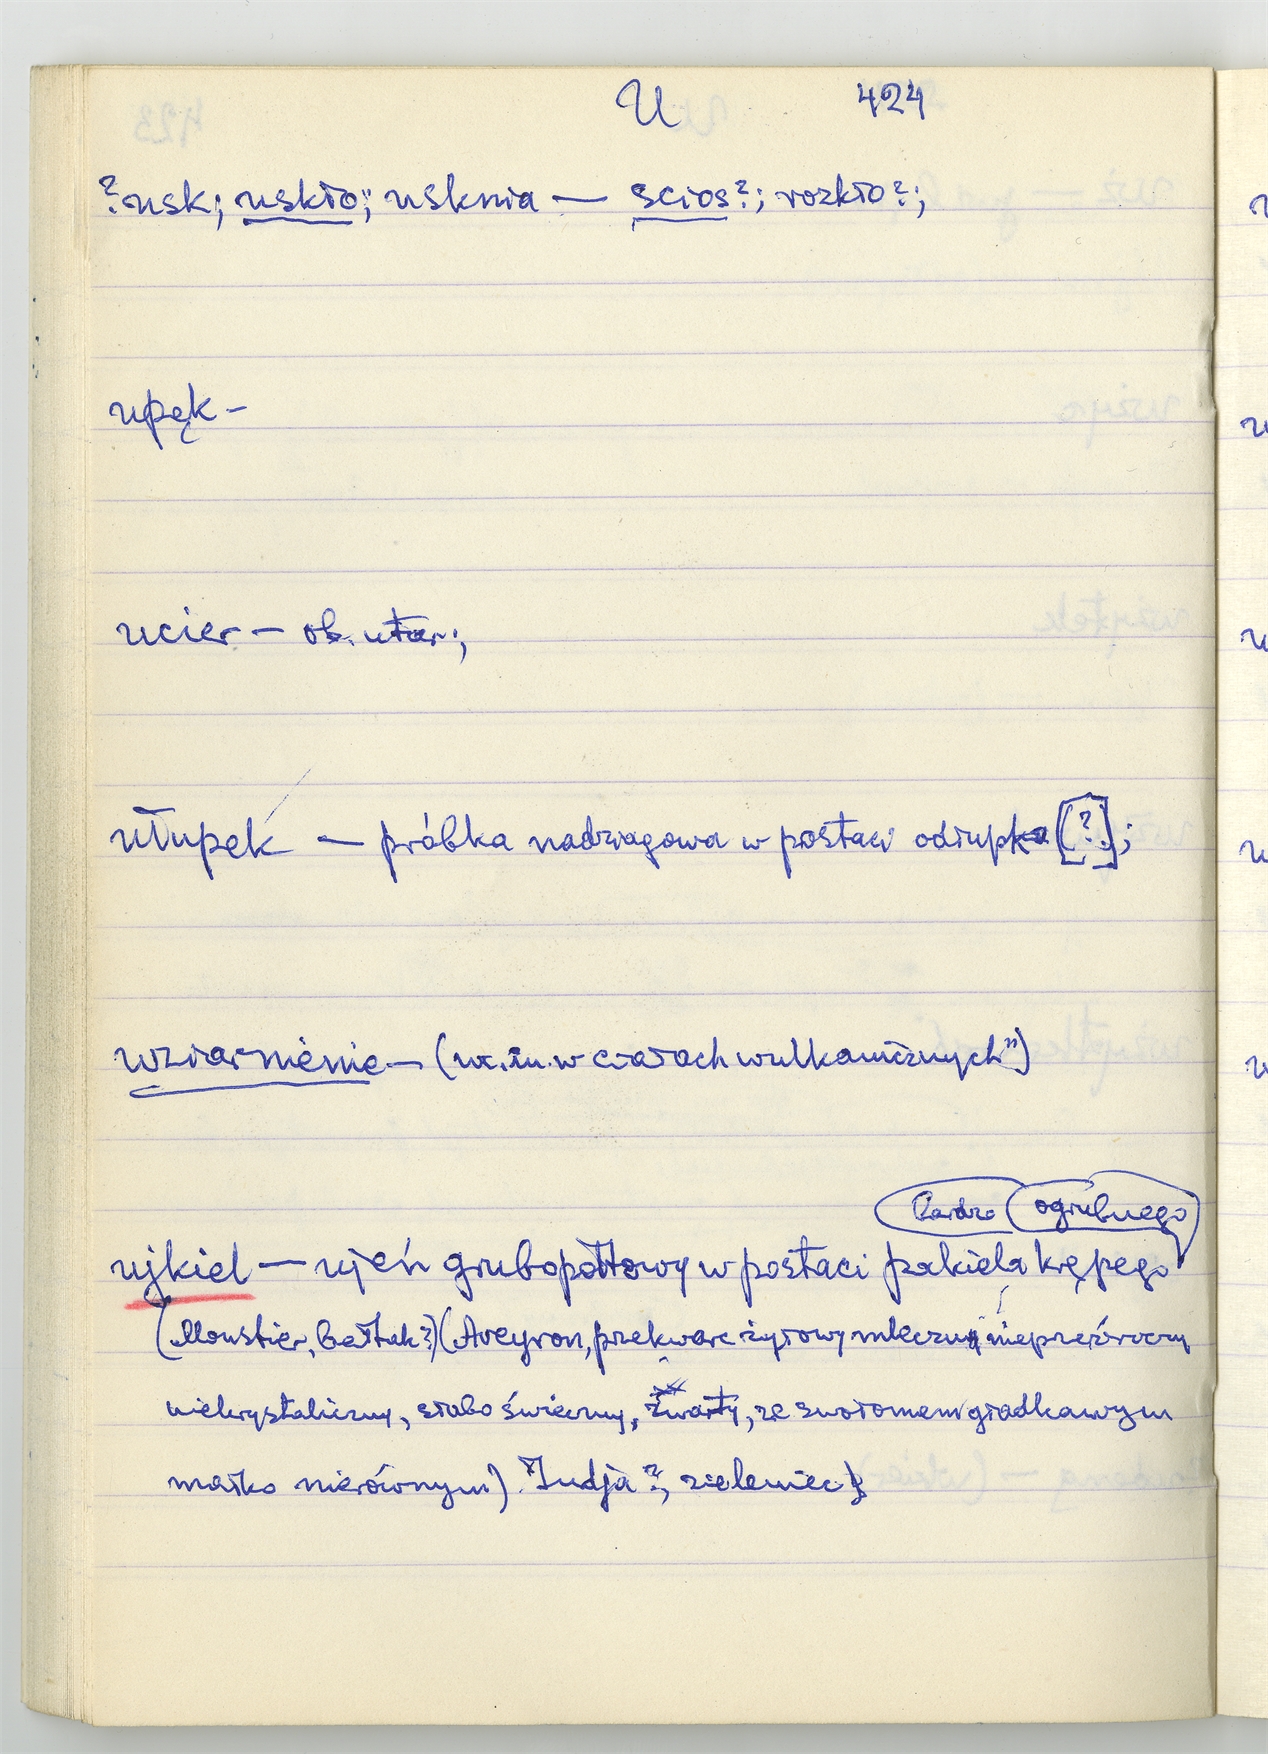 U 424
?usk; uskło; usknia — ścios?; rozkło?;
upęk –
ucier – ob. utar.;
ułupek — próbka nadzwagowa w postaci odłupka [(?)];
uziarnienie — (uż. m. w ciałach wulkanicznych")
bardzo ogrubnego
ujkiel — ujeń grubopołtowy w postaci pakieła krępego
(Moustier, Bałtuk?) (Aveyron, przekwarc żyłowy mleczny nieprzeźroczy
niekrystaliczny, słabo świecny, zwarty, ze swołomem gładkawym
małko nierównym). "Indja?, zieleniec};